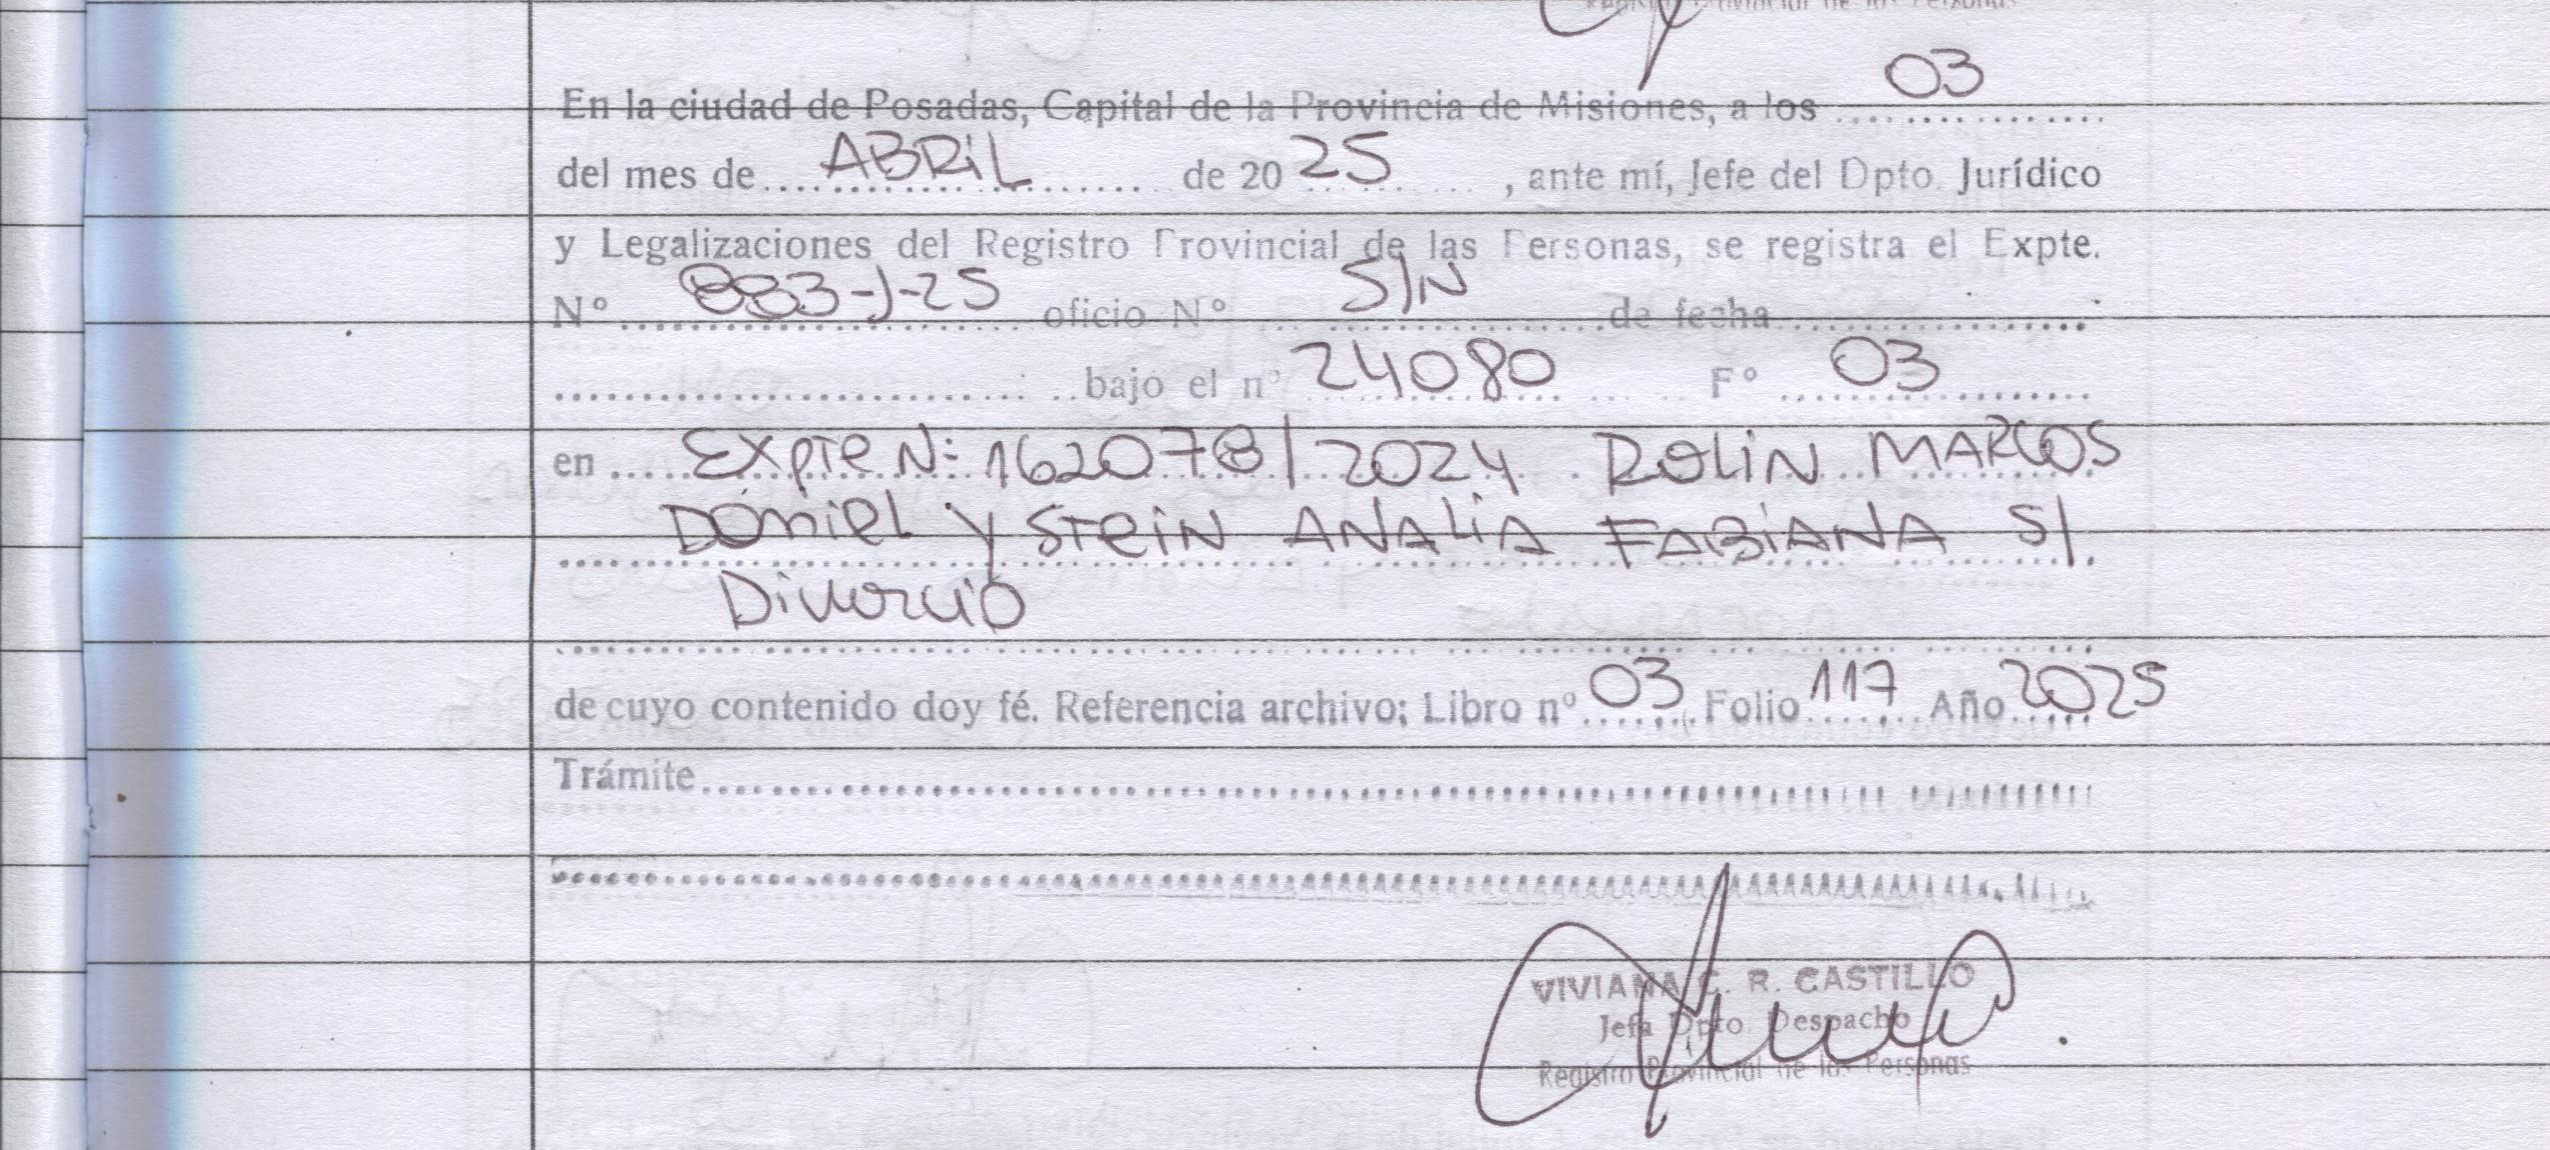 Registro Provincial de las Personas
En la ciudad de Posadas, Capital de la Provincia de Misiones, a los 03
del mes de ABRIL de 20 25, ante mí, Jefe del Dpto. Jurídico
y Legalizaciones del Registro Provincial de las Personas, se registra el Expte.
Nº 883-J-25 oficio Nº S/N de fecha
bajo el nº 24080 Fº 03
en Expte N: 162078/2024 ROLIN MARCOS
DANIEL Y STEIN ANALIA FABIANA S/
Divorcio
de cuyo contenido doy fé. Referencia archivo; Libro nº 03 Folio 117 Año 2025
Trámite
VIVIANA C. R. CASTILLO
Jefa Dpto Despacho
Registro Provincial de las Personas